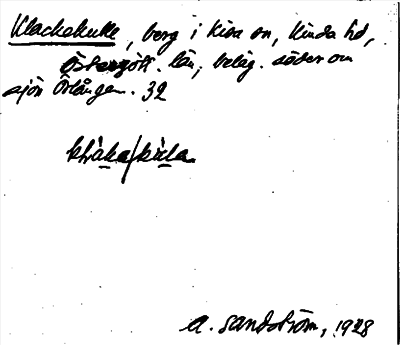 Klackekulle, berg i Kisa sn, Kinda hd,
Östergötl. län, beläg. söder om
sjön Örlången. 32
A. Sandström, 1928